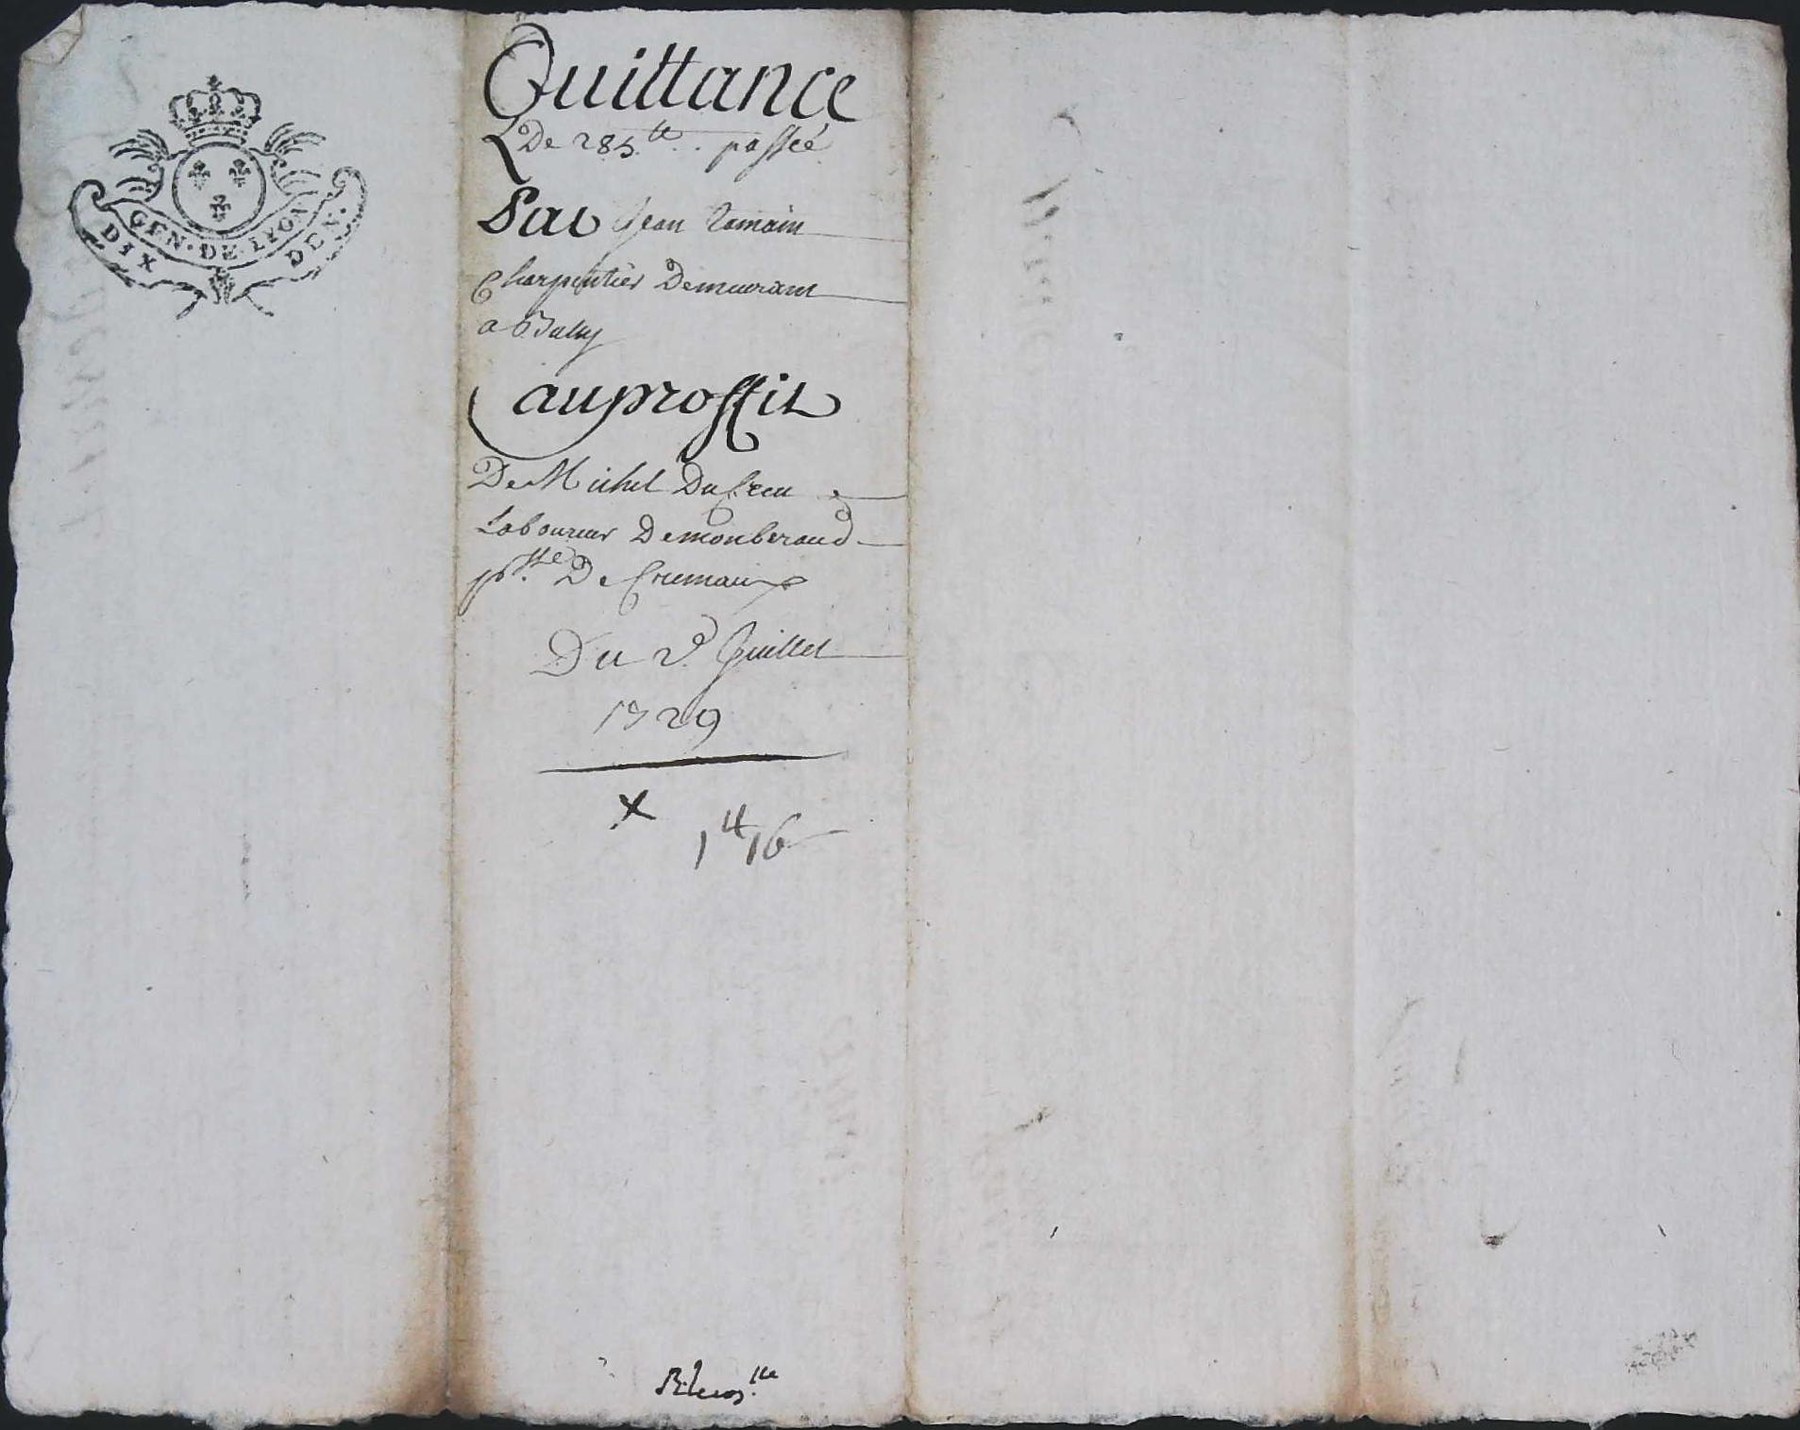 GEN. DE LYON
DIX DEN.
Quittance
De 285.tt. passée
Par Jean Romain
Charpentier Demeurant
a Bully
au proffit
De Michel Ducreu
Laboureur Demonberaud
p.sse De Cremaux
Du 2.e Juillet
1729
x
1tt 16